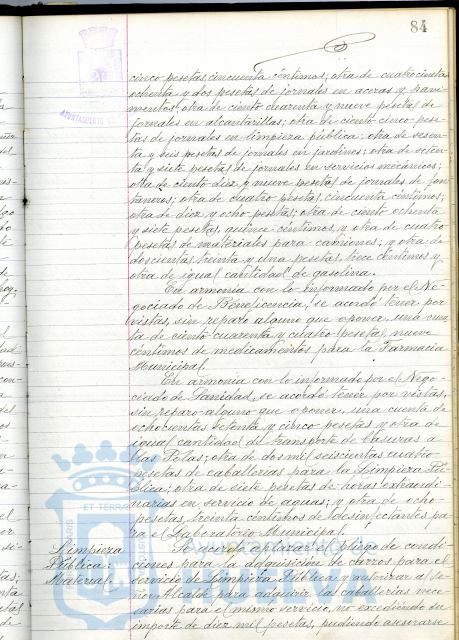 84
cinco pesetas, cincuenta céntimos; otra de cuatrocientas
ochenta y dos pesetas de jornales en aceras y pavi-
mentos; otra de ciento cuarenta y nueve pesetas de
jornales en alcantarillas; otra de ciento cinco pese-
tas de jornales en limpieza pública; otra de sesen-
ta y seis pesetas de jornales en jardines; otra de seten-
ta y siete pesetas de jornales en servicios mecánicos;
otra de ciento diez y nueve pesetas de jornales de fon-
taneros; otra de cuatro pesetas, cincuenta céntimos;
otra de diez y ocho pesetas; otra de ciento ochenta
y siete pesetas, quince céntimos, y otra de cuatro
pesetas de materiales para camiones; y otra de
doscientas treinta y una pesetas, trece céntimos y
otra de igual cantidad de gasolina.
En armonía con lo informado por el Ne-
gociado de Beneficencia, se acordó tener por
vistas, sin reparo alguno que oponer, una cuen-
ta de ciento cuarenta y cuatro pesetas, nueve
céntimos de medicamentos para la Farmacia
Municipal.
En armonía con lo informado por el Nego-
ciado de Sanidad, se acordó tener por vistas,
sin reparo alguno que oponer, una cuenta de
ochocientas setenta y cinco pesetas y otra de
igual cantidad de transporte de basuras a
las Islas; otra de dos mil seiscientas cuatro
pesetas de caballerías para la Limpieza Pú-
blica; otra de siete pesetas de horas extraordi-
narias en servicio de aguas; y otra de ocho
pesetas, treinta céntimos de desinfectantes pa-
ra el Laboratorio Municipal.
Limpieza
Pública:
Material.
Se acordó aplazar el pliego de condi-
ciones para la adquisición de carros para el
servicio de Limpieza Pública y autorizar al Se-
ñor Alcalde para adquirir las caballerías nece-
sarias para el mismo servicio, no excediendo su
importe de diez mil pesetas, pudiendo asesorarse
AYUNTAMIENTO DE
ET TERRA